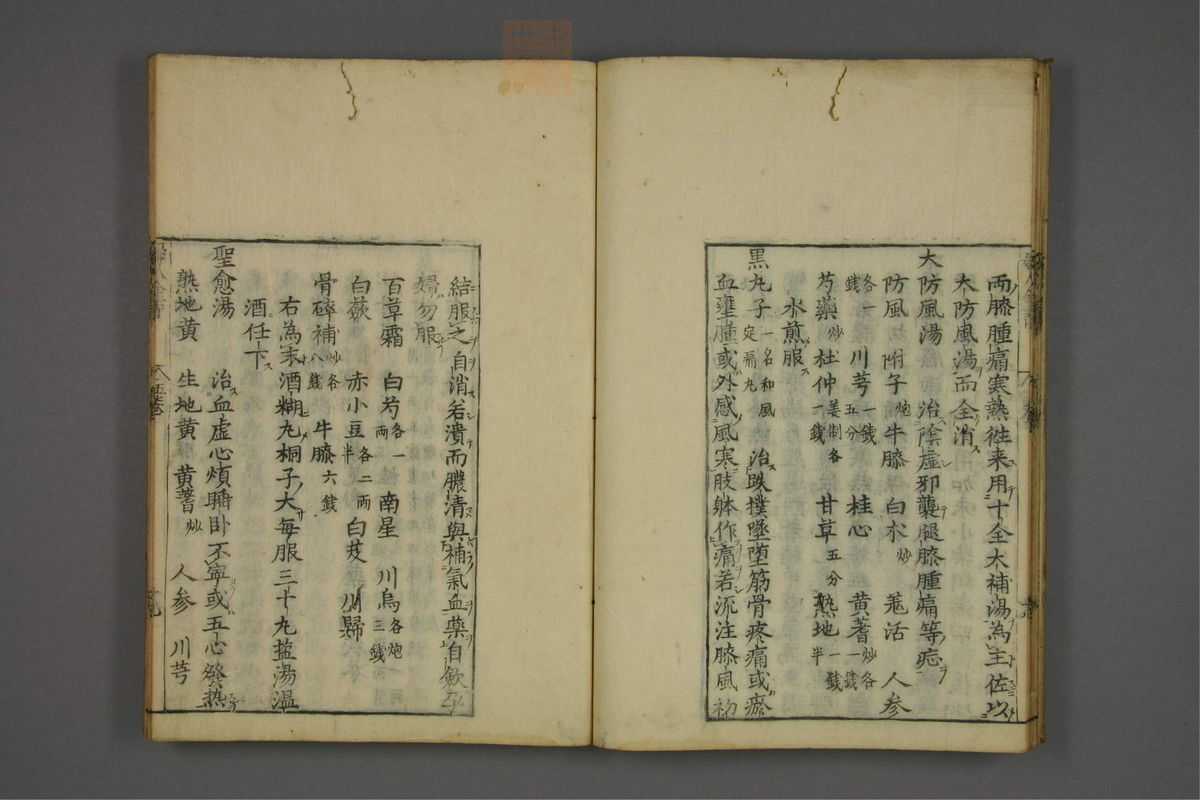 両膝腫痛寒熱徃来用十全大補湯為主佐以
大防風湯而全消
大防風湯 治陰虚邪襲腿膝腫痛等症
防風 附子炮 牛膝 白朮炒 羗活 人参
各一銭 川芎一銭五分 桂心 黄蓍炒各一銭
芍薬炒 杜仲姜制各一銭 甘草五分 熟地一銭半
水煎服
黒丸子一名和風定痛丸 治跌撲墜堕筋骨疼痛或瘀
血壅腫或外感風寒肢躰作痛若流注膝風初
結服之自消若潰而膿清與補氣血薬自歛孕
婦勿服
百草霜 白芍各一両 南星 川烏各炮三銭
白蘞 赤小豆各二両半 白芨 川歸
骨碎補炒各八銭 牛膝六銭
右為末酒糊丸桐子大每服三十丸盐湯温
酒任下
聖愈湯 治血虚心煩睡卧不寧或五心發热
熟地黄 生地黄 黄蓍炒 人参 川芎